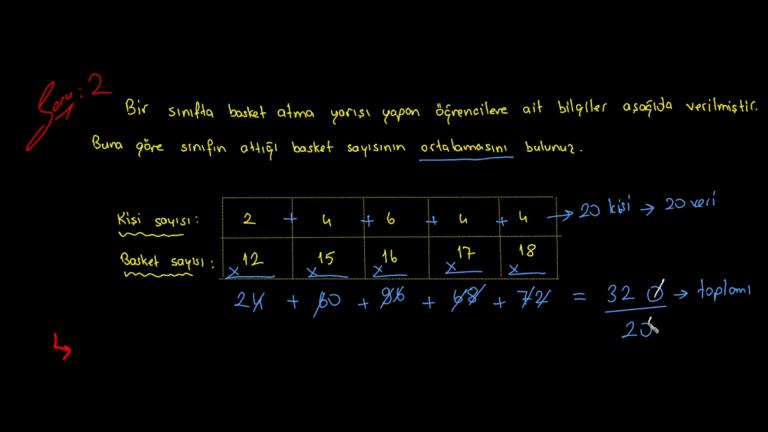 Soru: 2
Bir sınıfta basket atma yarışı yapan öğrencilere ait bilgiler aşağıda verilmiştir.
Buna göre sınıfın attığı basket sayısının ortalamasını bulunuz.
Kişi sayısı: 2 + 4 + 6 + 4 + 4 → 20 kişi → 20 veri
Basket sayısı: x12 x15 x16 x17 x18
24 + 60 + 96 + 68 + 72 = 320 → toplamı
20